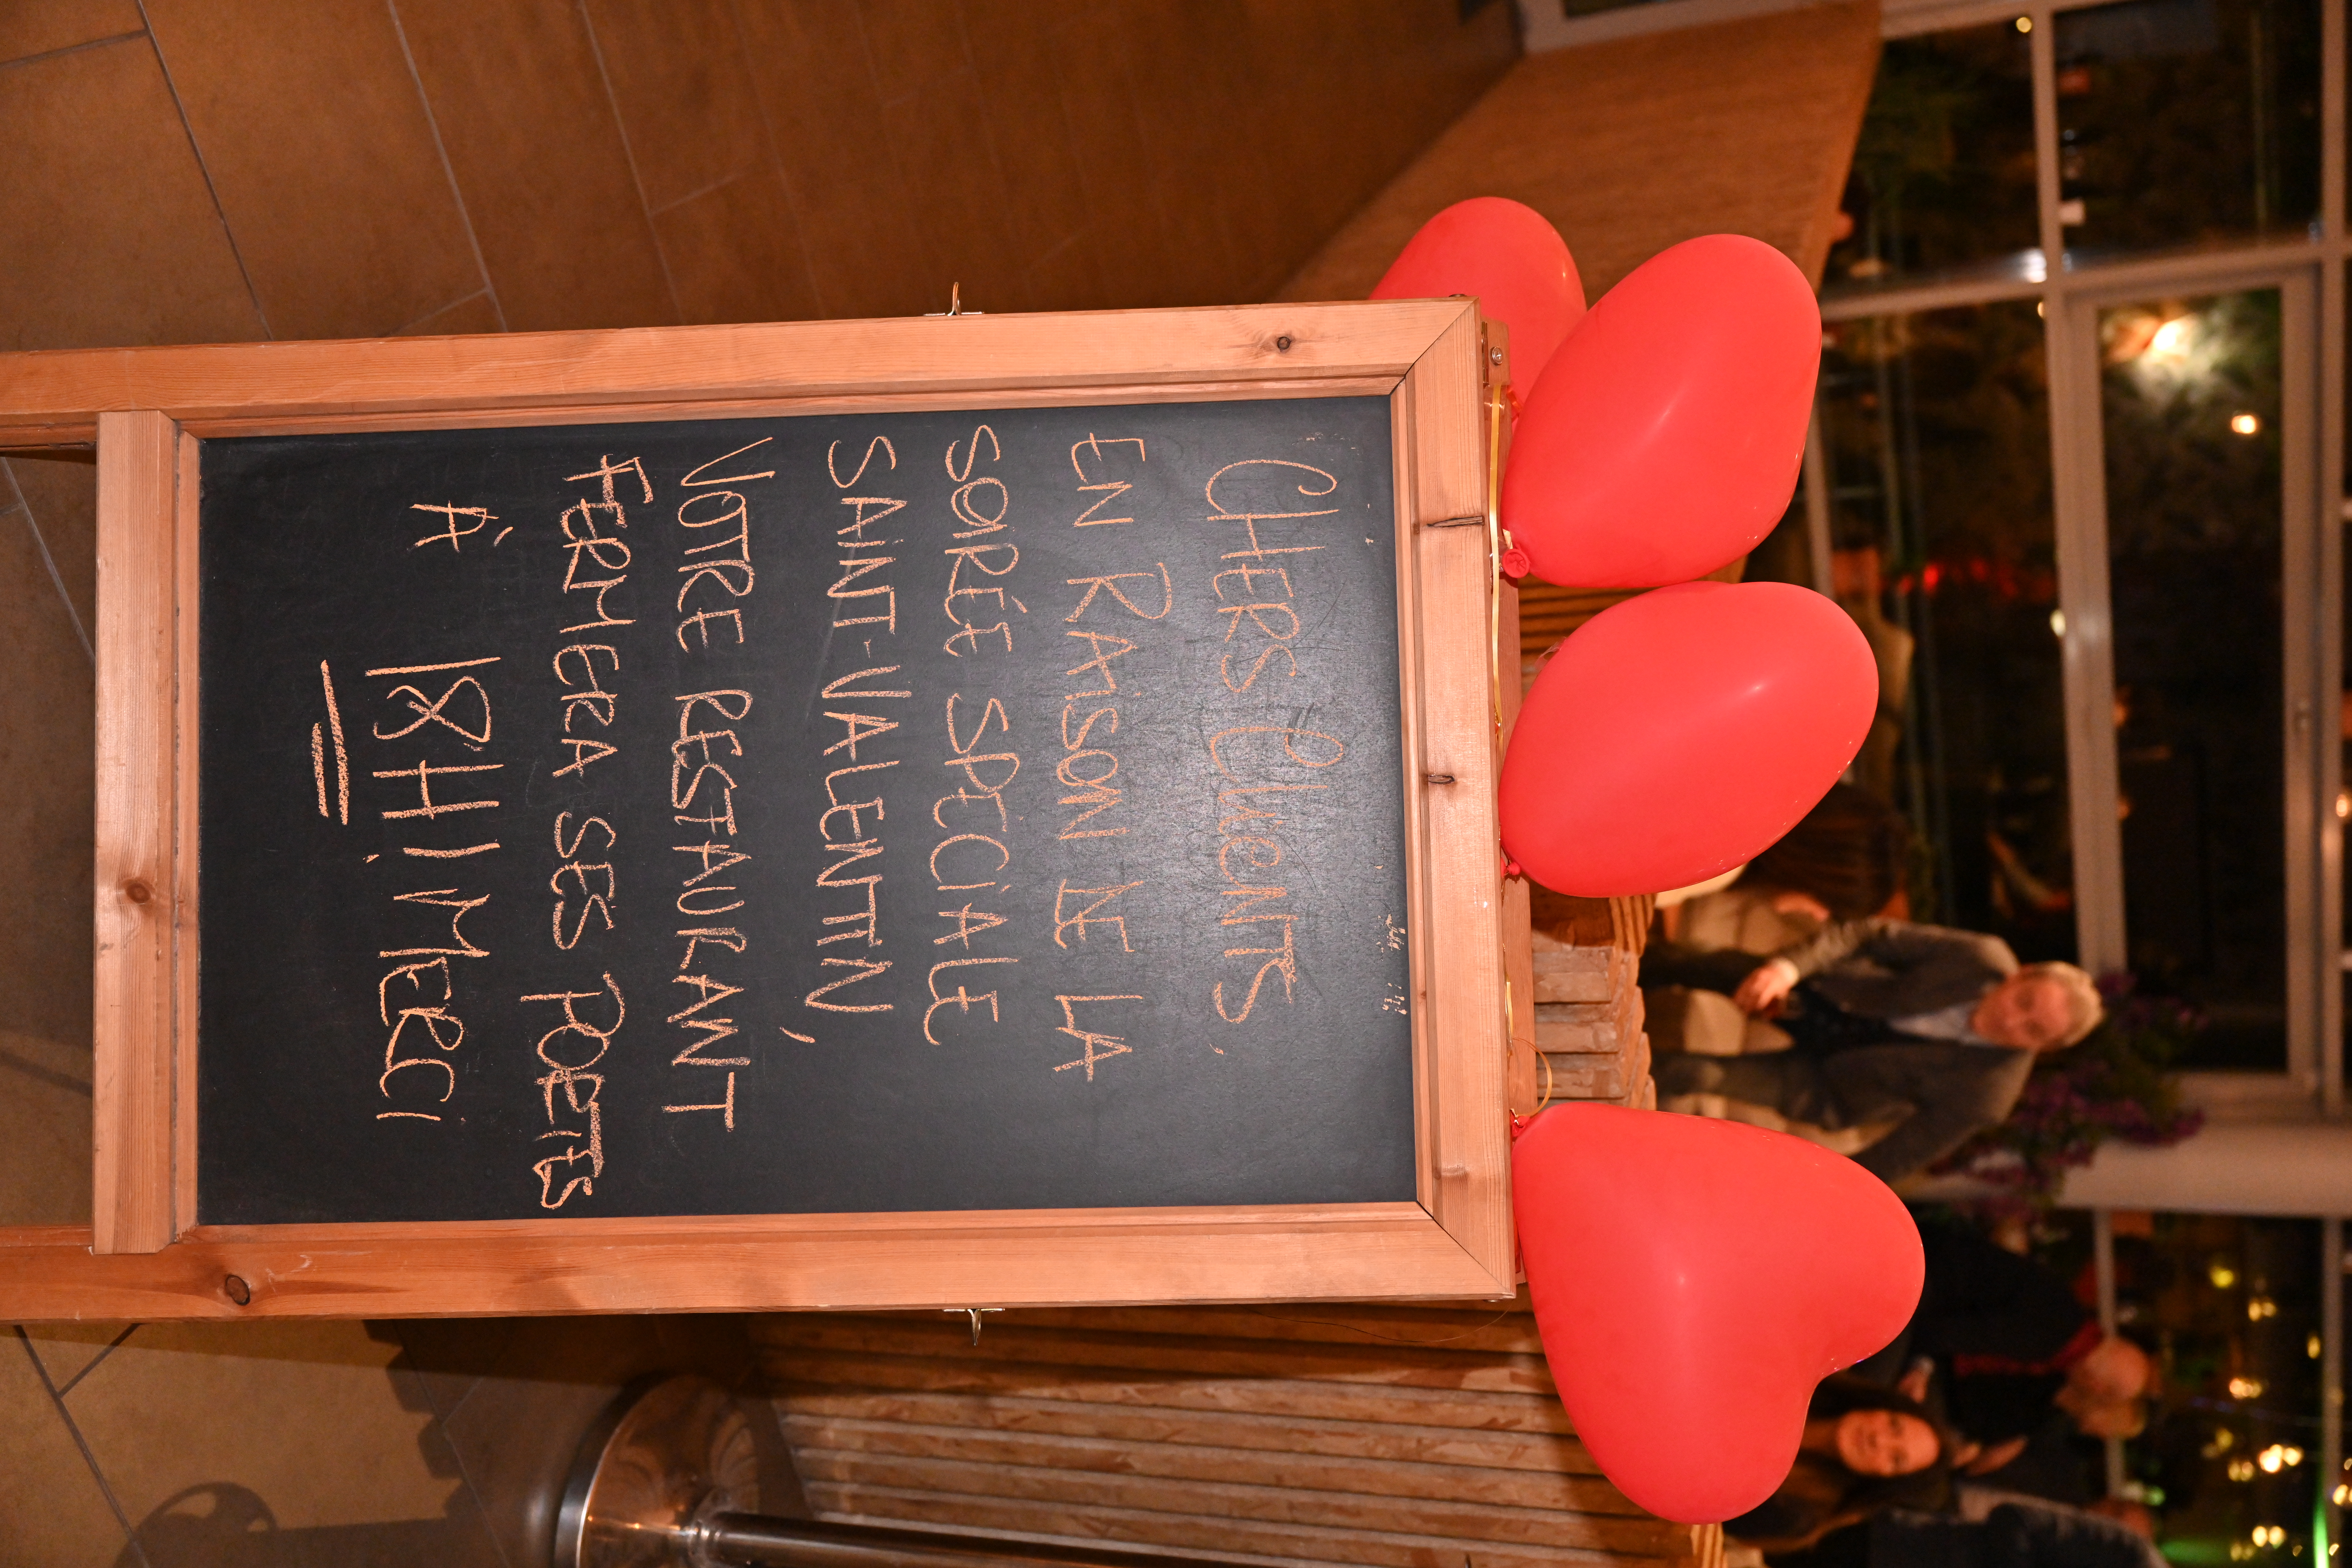 CHERS CLIENTS,
EN RAISON DE LA
SOIRÉE SPÉCIALE
SAINT-VALENTIN,
VOTRE RESTAURANT
FERMERA SES POETES
À 18H! MERCI